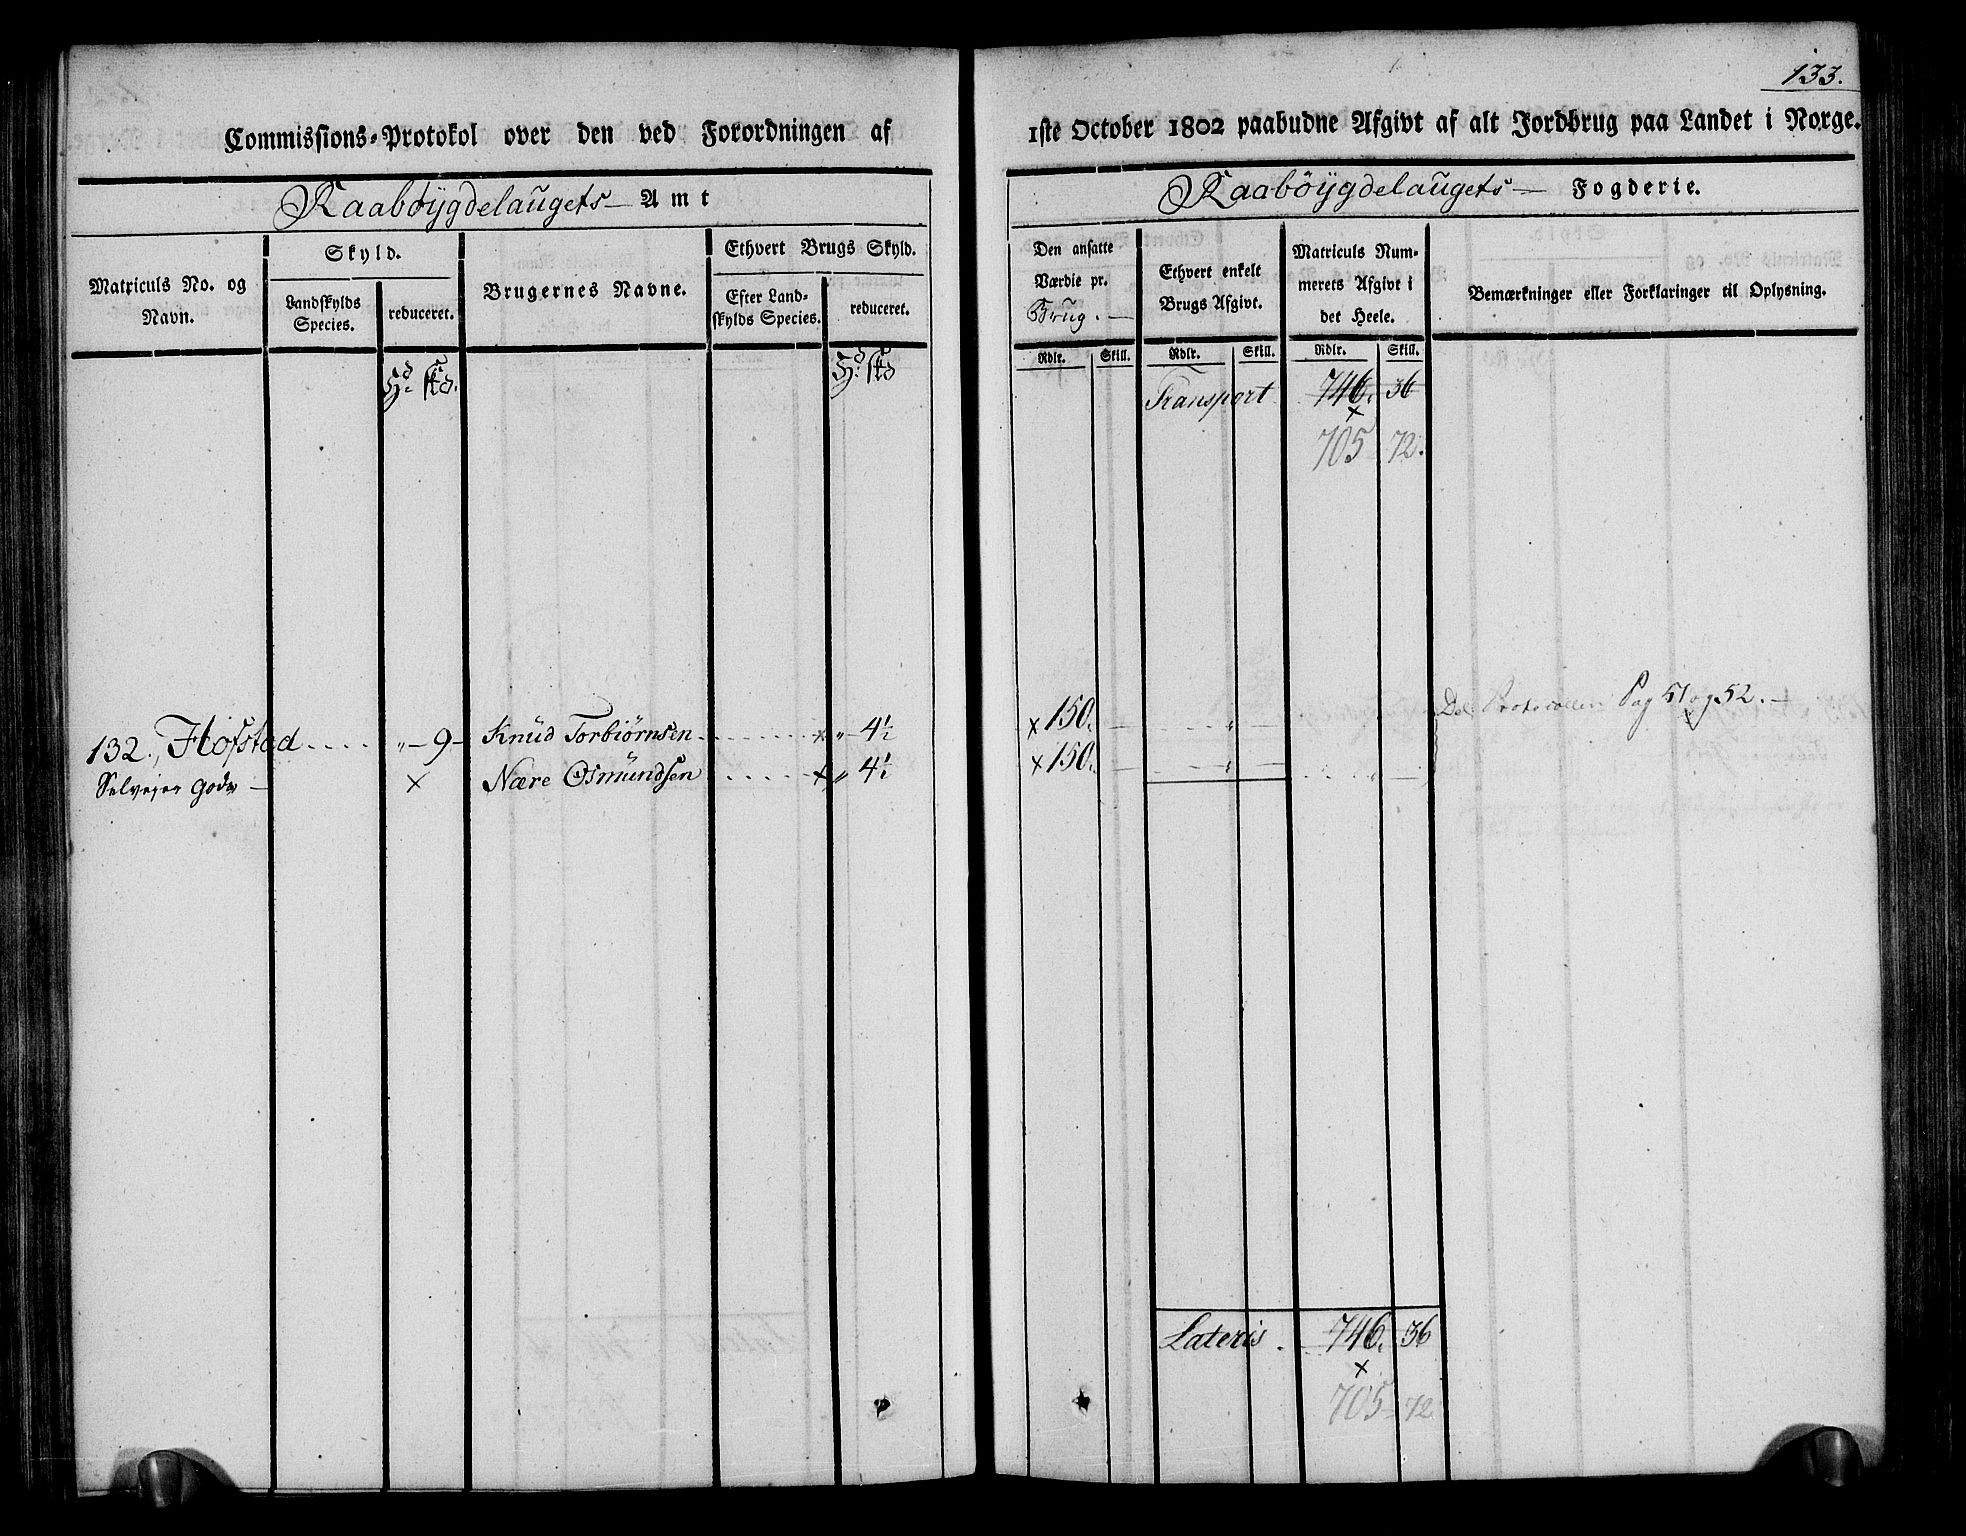 133.
Commissions-Protokol over den ved Forordningen af 1ste October 1802 paabudne Afgivt af alt Jordbrug paa Landet i Norge.
Raabøygdelaugets Amt
Raabøygdelaugets Fogderie.
Matriculs No. og Navn.
Skyld.
Landskylds Species.
reduceret.
Brugernes Navne.
Ethvert Brugs Skyld.
Efter Landskylds Species.
reduceret.
Den ansatte Værdie pr. Brug.
Ethvert enkelt Brugs Afgivt.
Matriculs Nummerets Afgivt i det Heele.
Bemærkninger eller Forklaringer til Oplysning.
Rdlr. Skill. Rdlr. Skill. Rdlr. Skill.
Transport 746. 36
705 72.
132., Hofstad „ - 9 - Knud Torbiørnsen „ - 4½ 150. Pag 51 og 52.
Selveier Gods Nære Osmundsen „ 4½ 150.
Lateris. 746. 36
705 72